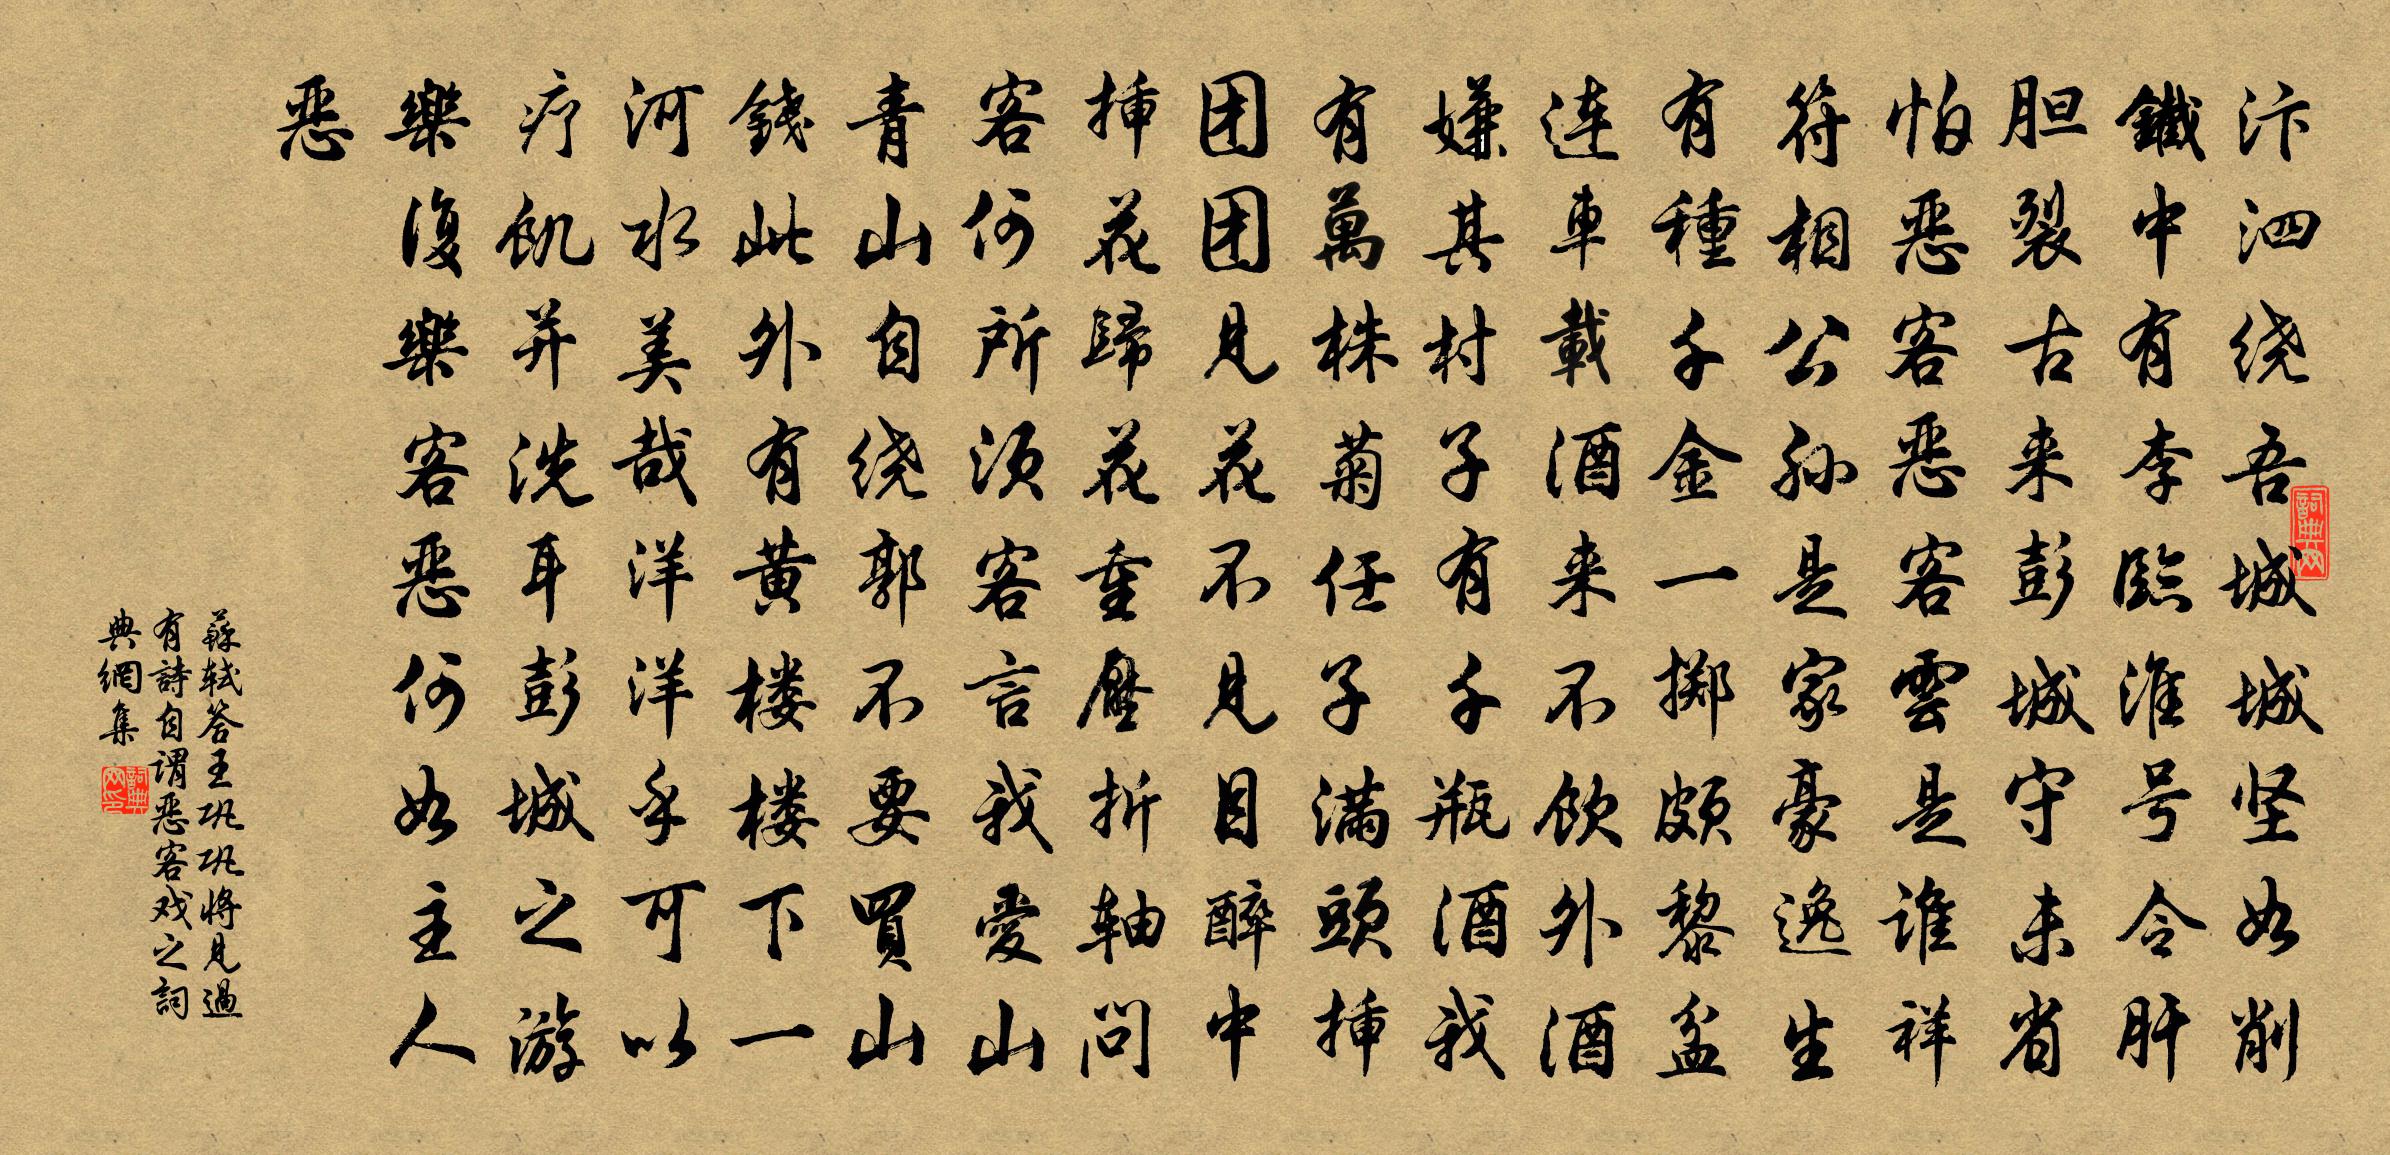 汴泗绕吾城城坚如削
鐵中有李臨淮号令肝
胆裂古来彭城守未省
怕恶客恶客雲是谁祥
符相公孙是家豪逸生
有種千金一掷颇黎盆
连車載酒来不饮外酒
嫌其村子有千瓶酒我
有萬株菊任子滿頭插
团团见花不见目醉中
插花歸花重壓折轴问
客何所须客言我愛山
青山自绕郭不要買山
錢此外有黄楼楼下一
河水美哉洋洋乎可以
疗飢并洗耳彭城之游
樂復樂客恶何如主人
恶
蘇轼答王巩巩将见過
有詩自谓恶客戏之詞
典網集
詞典网
詞典网印